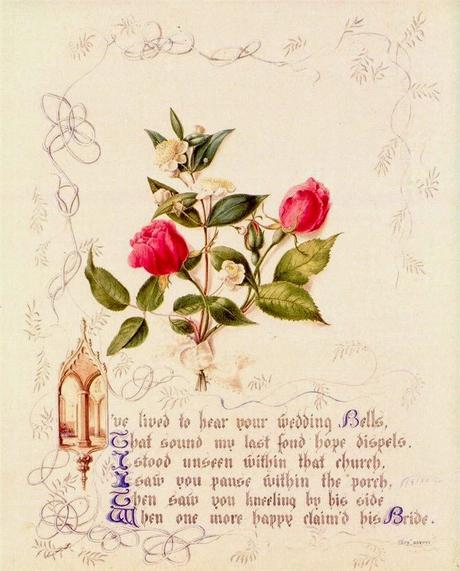 I've lived to hear your wedding Bells,
That sound my last fond hope dispels.
I stood unseen within that church,
I saw you pause within the porch,
Then saw you kneeling by his side
When one more happy claim'd his Bride.